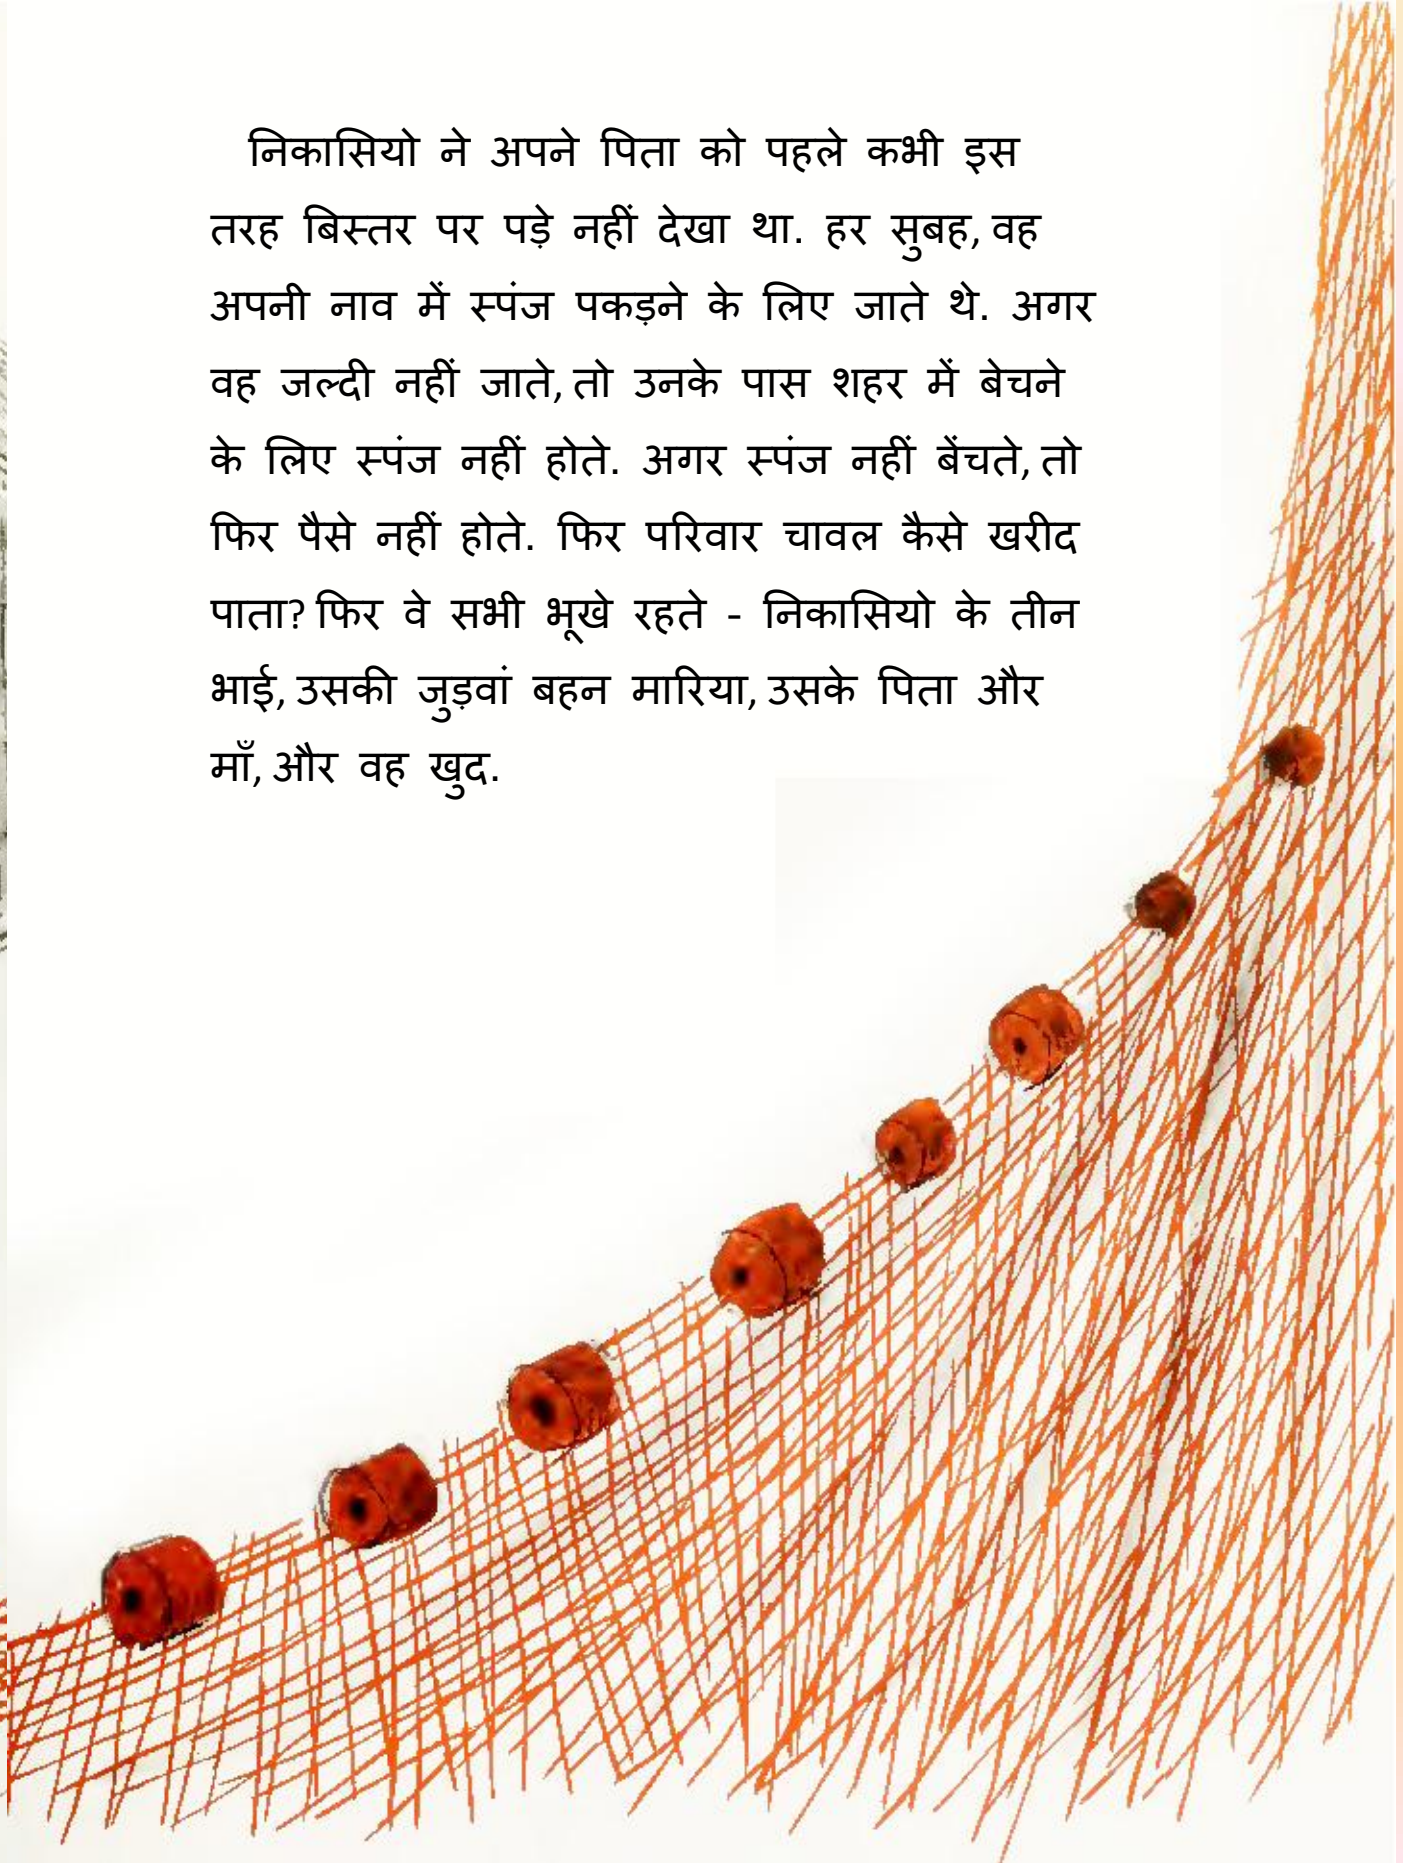 निकासियो ने अपने पिता को पहले कभी इस
तरह बिस्तर पर पड़े नहीं देखा था. हर सुबह, वह
अपनी नाव में स्पंज पकड़ने के लिए जाते थे. अगर
वह जल्दी नहीं जाते, तो उनके पास शहर में बेचने
के लिए स्पंज नहीं होते. अगर स्पंज नहीं बेंचते, तो
फिर पैसे नहीं होते. फिर परिवार चावल कैसे खरीद
पाता? फिर वे सभी भूखे रहते - निकासियो के तीन
भाई, उसकी जुड़वां बहन मारिया, उसके पिता और
माँ, और वह खुद.